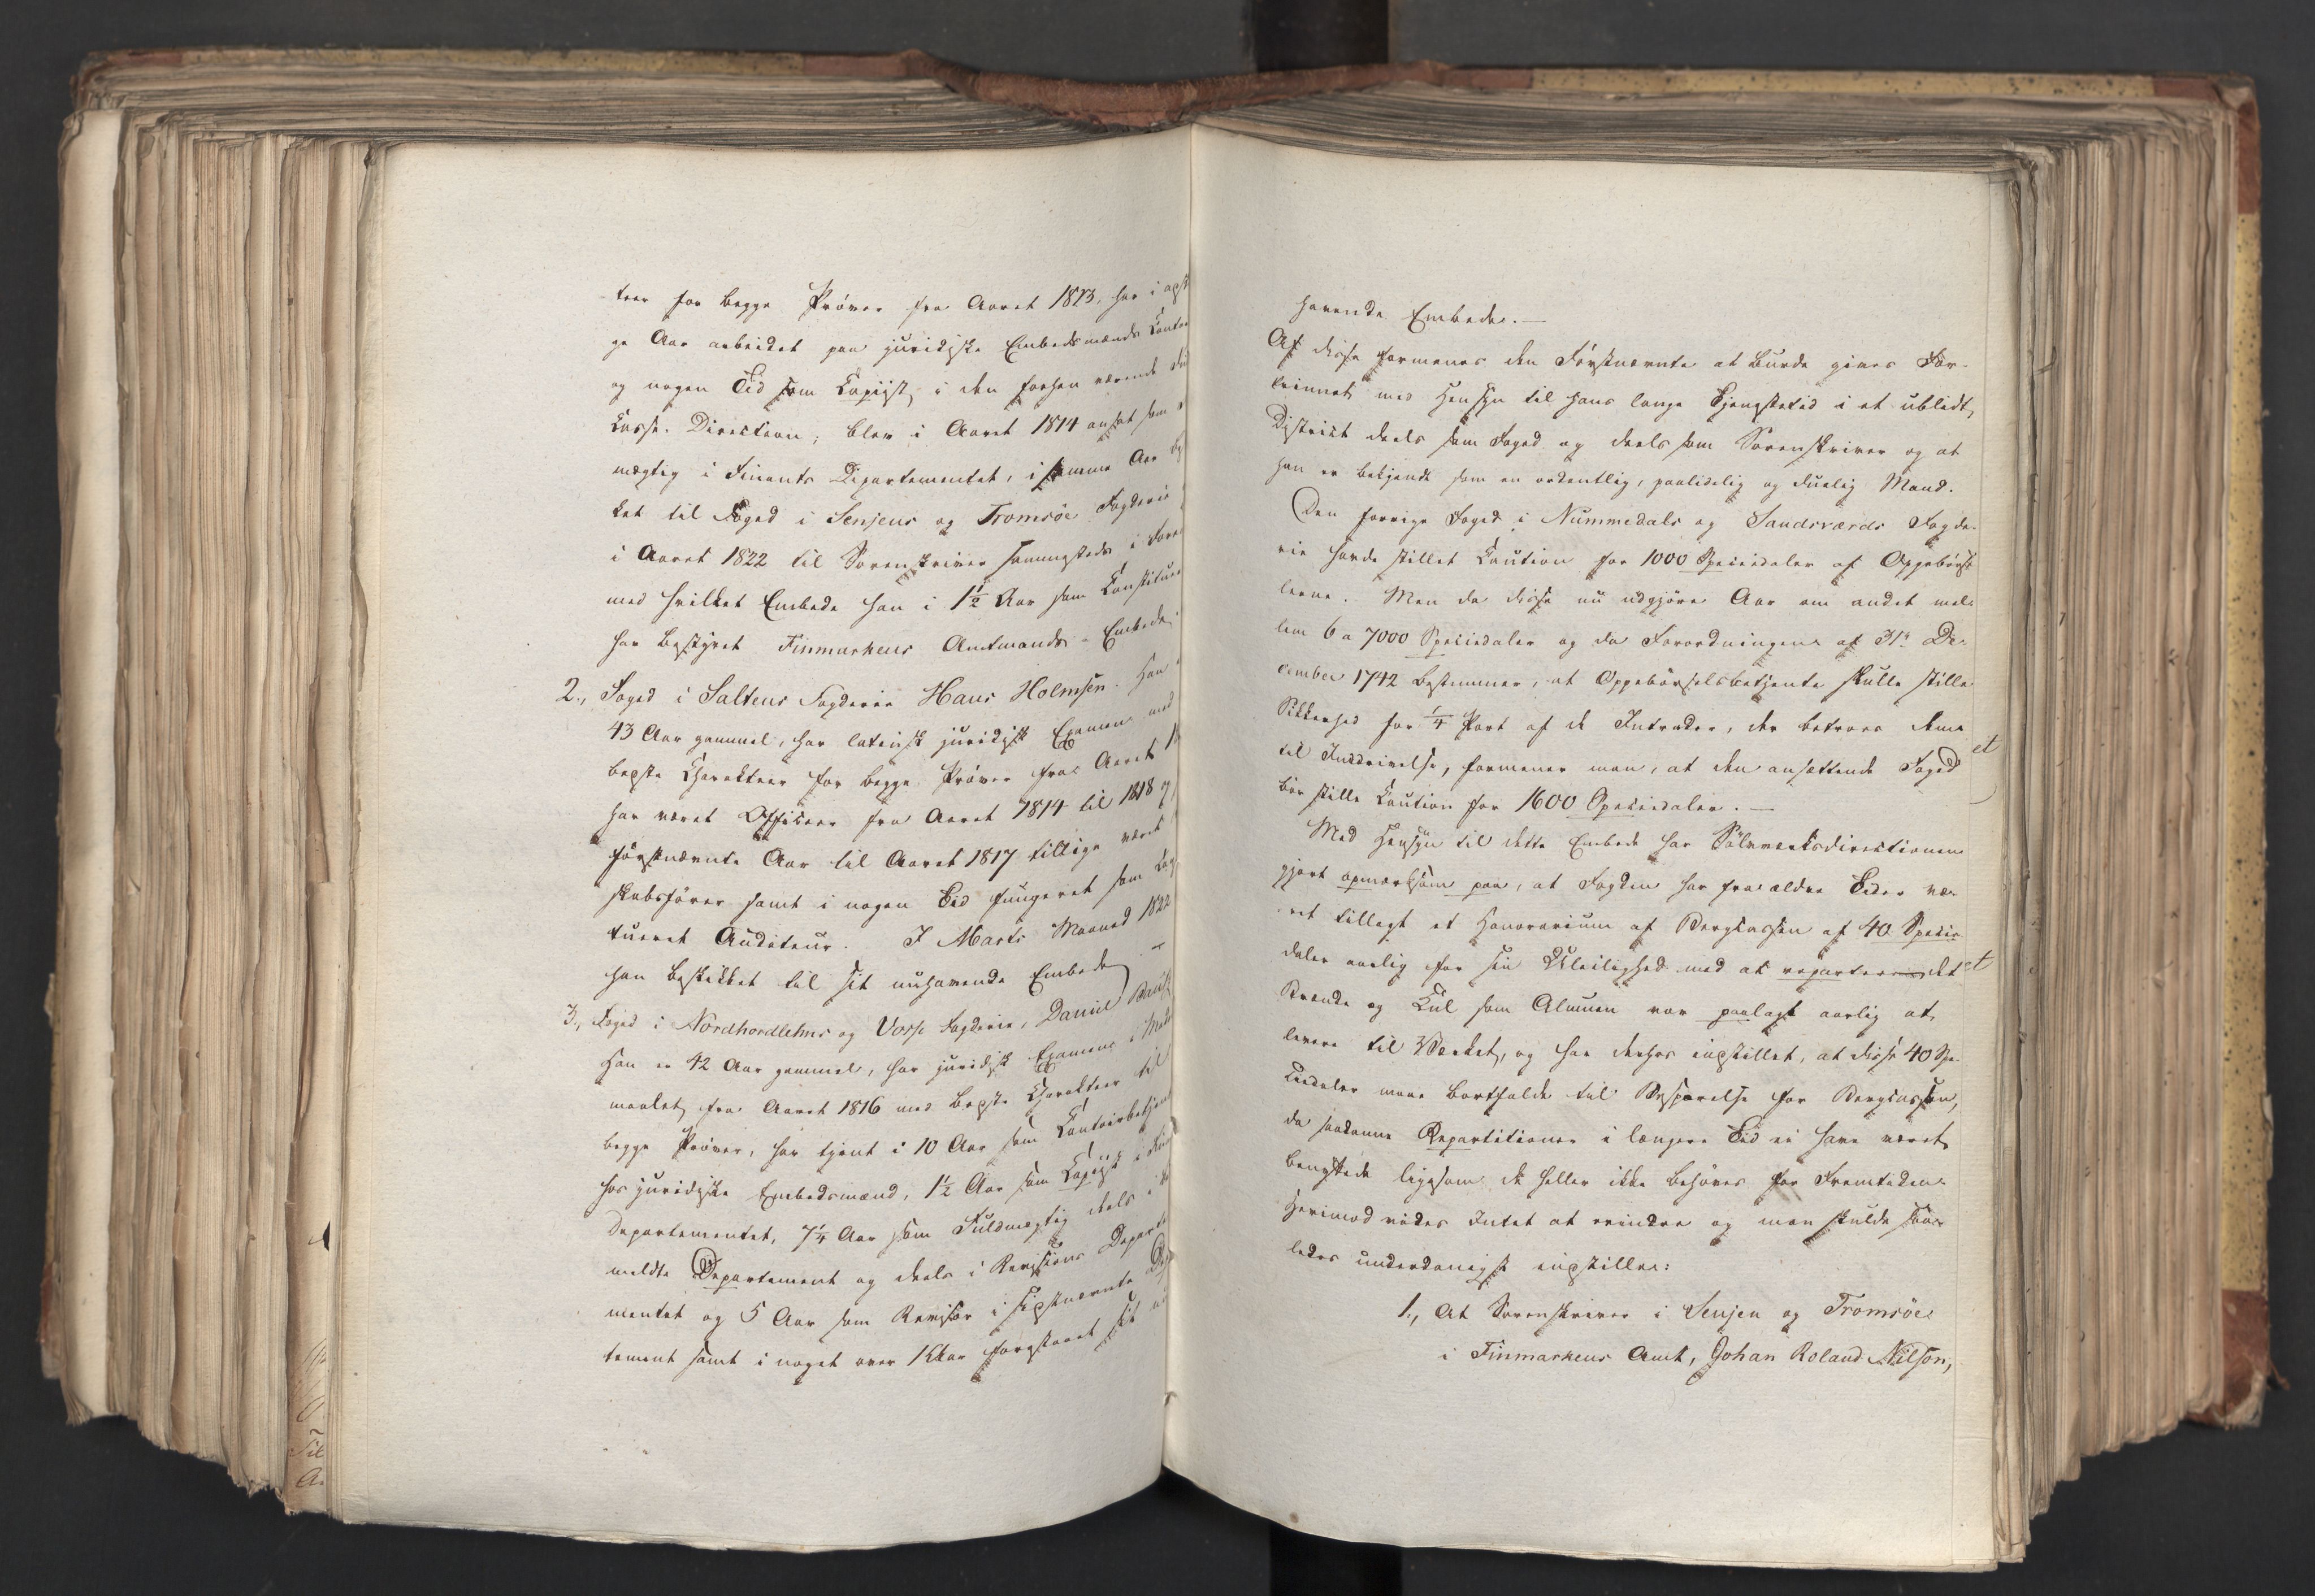 teer for begge Prøver fra Aaret 1813, har i
ge Aar arbeidet paa juridiske Embedsmænds Contoi
og nogen Tid som Copiist i den forhen værende
Casse-Direction; blev i Aaret 1814 ansat som
mægtig i Finants Departementet, i samme Aar
ket til Foged i Senjens og Tromsöe Fogderie
i Aaret 1822 til Sorenskriver sammesteds i
med hvilket Embede han i 1½ Aar som Constitue
har bestyret Finmarkens Amtmands-Embede
2., Foged i Saltens Fogderie Hans Holmsen. Han
43 Aar gammel, har latinsk juridisk Examen med
bedste Charakteer for begge Prøver fra Aaret
har været Officeer fra Aaret 1814 til 1818 og
förstnævnte Aar til Aaret 1817 tillige været
skabsfører samt i nogen Tid fungeret som
tueret Auditeur. I Marts Maaned 1822
han beskikket til sit nuhavende Embede
3., Foged i Nordhordlehns og Vosse Fogderie, Daniel
Han er 42 Aar gammel, har juridisk Examen i
maalet fra Aaret 1816 med bedste Charakteer til
begge Prøver, har tjent i 10 Aar som Contoirbetjent
hos juridiske Embedsmænd, 1½ Aar som Copiist i
Departementet, 7¼ Aar som Fuldmægtig deels i
meldte Departement og deels i Revisions Departe
mentet og 5 Aar som Revisor i sidstnævnte
tement samt i noget over 1 Aar forestaaet sit
havende Embede.—
Af disse formenes den Førstnævnte at burde gives For-
trinnet med Hensyn til hans lange Tjenestetid i et ublidt
District deels som Foged og deels som Sorenskriver og at
han er bekjendt som en ordentlig, paalidelig og duelig Mand.
Den forrige Foged i Nummedals og Sandsværds Fogde-
rie havde stillet Caution for 1000 Speciedaler af Oppebørs
lerne. Men da disse nu udgjøre Aar om andet mel-
lem 6 a 7000 Speciedaler og da Forordningen af 31te De-
cember 1742 bestemmer, at Oppebørselsbetjente skulle stille
Sikkerhed for ¼ Part af de Intrader, der betroes dem
til Inddrivelse, formener man, at den ansættende Foged
bör stille Caution for 1600 Speciedaler.—
et
Med Hensyn til dette Embede har Sölvværksdirectionen
gjort opmærksom paa, at Fogden har fra ældre Tider væ-
ret tillagt et Honorarium af Bergcassen af 40 Specie-
daler aarlig for sin Uleilighed med at repartere det
et
Brænde og Kul som Almuen var paalagt aarlig at
levere til Værket, og har derhos indstillet, at disse 40 Spe-
ciedaler maae bortfalde til Besparelse for Bergcassen,
da saadanne Repartitioner i længere Tid ei have været
benyttede ligesom de heller ikke behøves for Fremtiden.
Herimod vides Intet at erindre og man skulde saa-
ledes underdanigst indstille:
1., At Sorenskriver i Senjen og Tromsöe
i Finmarkens Amt, Johan Roland Nilson,